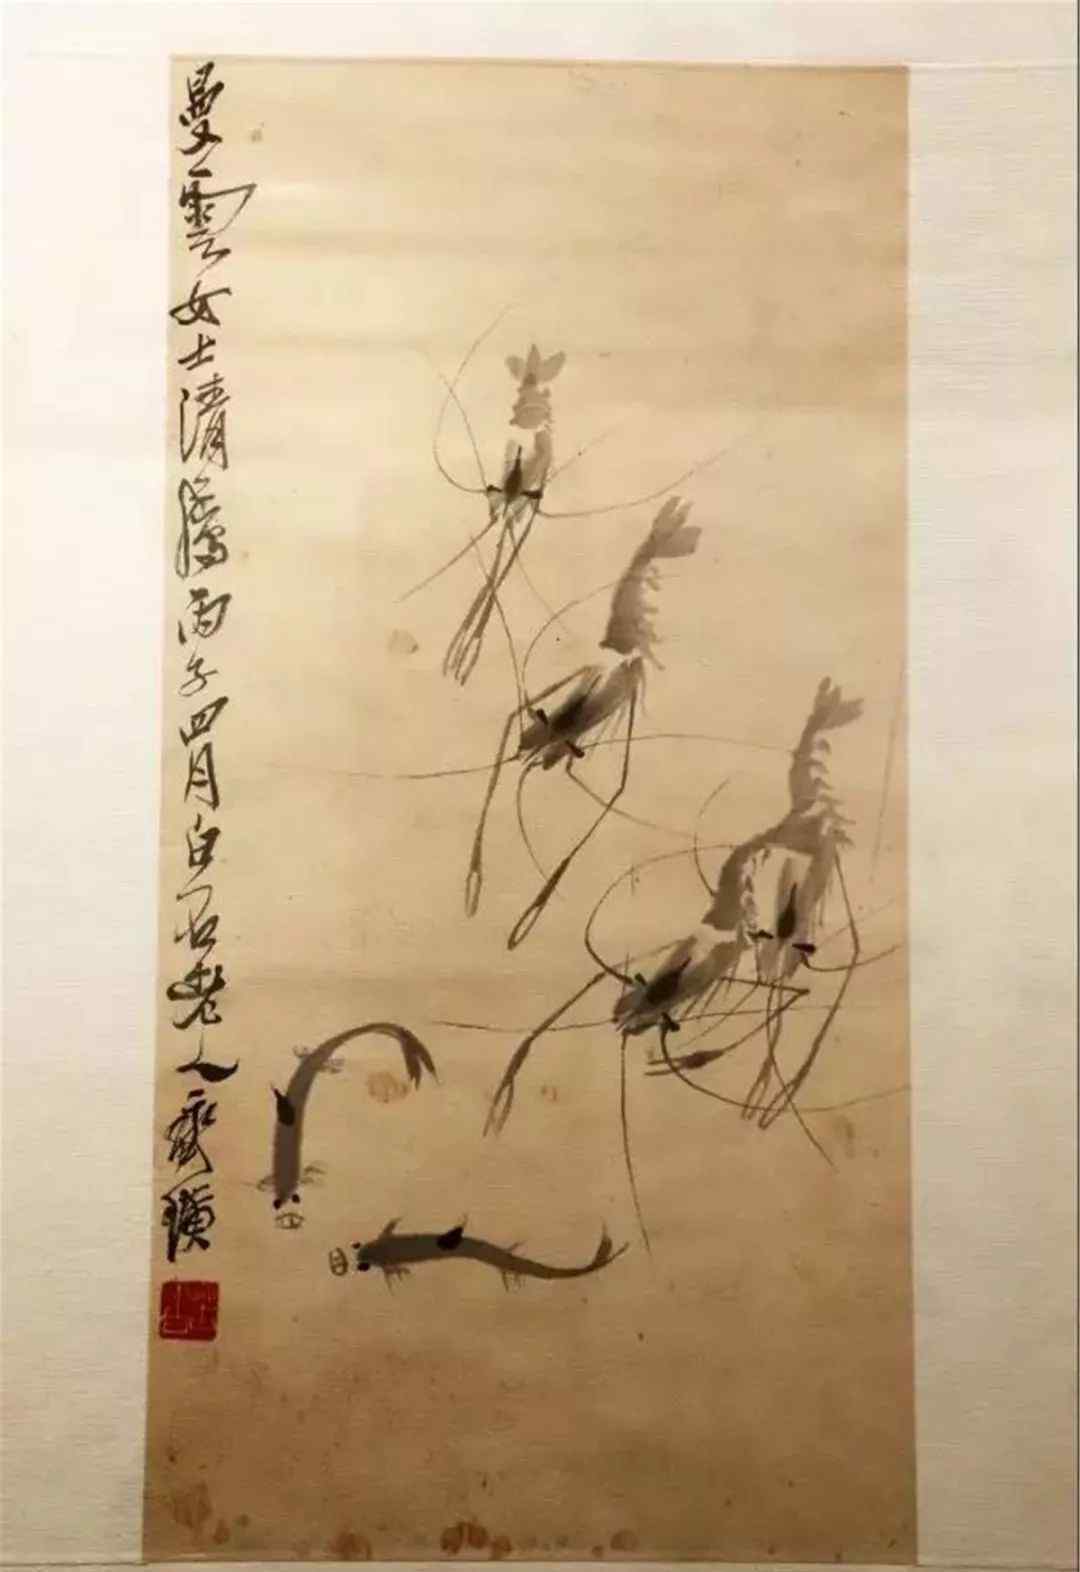 曼雲女士清属丙子四月白石老人齊璜